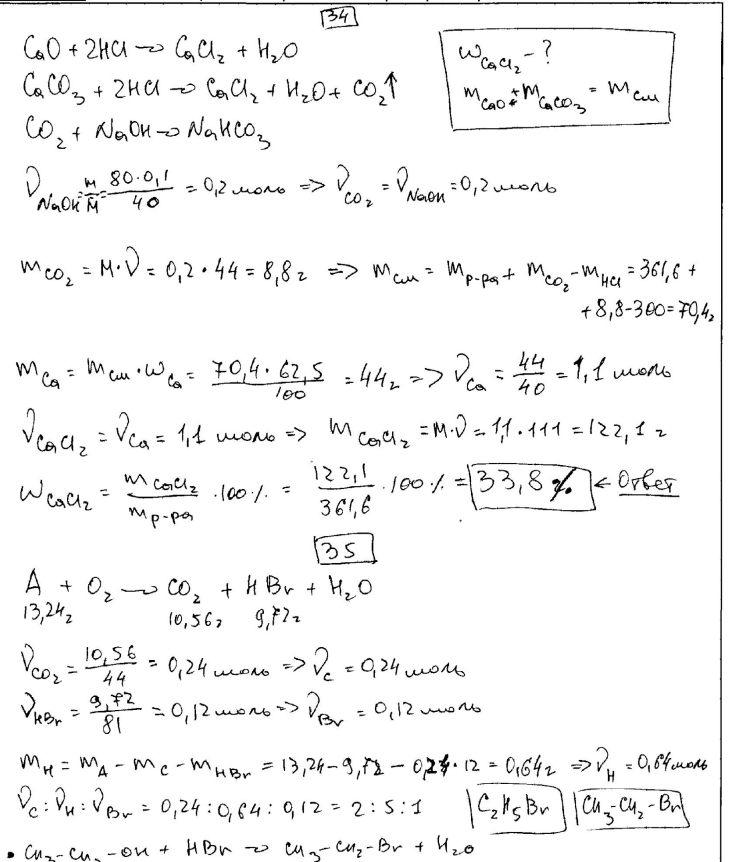 34
CaO + 2HCl → CaCl₂ + H₂O
CaCO₃ + 2HCl → CaCl₂ + H₂O + CO₂↑
CO₂ + NaOH → NaHCO₃
ω CaCl₂ - ?
m CaO + m CaCO₃ = m см
ν NaOH = m/M = 80·0,1/40 = 0,2 моль => ν CO₂ = ν NaOH = 0,2 моль
m CO₂ = M·ν = 0,2·44 = 8,8 г => m см = m р-ра + m CO₂ - m HCl = 361,6 +
+ 8,8-300 = 70,4 г
m Ca = m см · ω Ca = 70,4·62,5/100 = 44 г => ν Ca = 44/40 = 1,1 моль
ν CaCl₂ = ν Ca = 1,1 моль => m CaCl₂ = M·ν = 1,1·111 = 122,1 г
ω CaCl₂ = m CaCl₂/m р-ра ·100% = 122,1/361,6 ·100% = 33,8% ← Ответ
35
A + O₂ → CO₂ + HBr + H₂O
13,24 г 10,56 г 9,72 г
ν CO₂ = 10,56/44 = 0,24 моль => ν C = 0,24 моль
ν HBr = 9,72/81 = 0,12 моль => ν Br = 0,12 моль
m H = m A - m C - m HBr = 13,24 - 9,72 - 0,24·12 = 0,64 г => ν H = 0,64 моль
ν C : ν H : ν Br = 0,24 : 0,64 : 0,12 = 2 : 5 : 1 C₂H₅Br CH₃-CH₂-Br
• CH₃-CH₂-OH + HBr → CH₃-CH₂-Br + H₂O